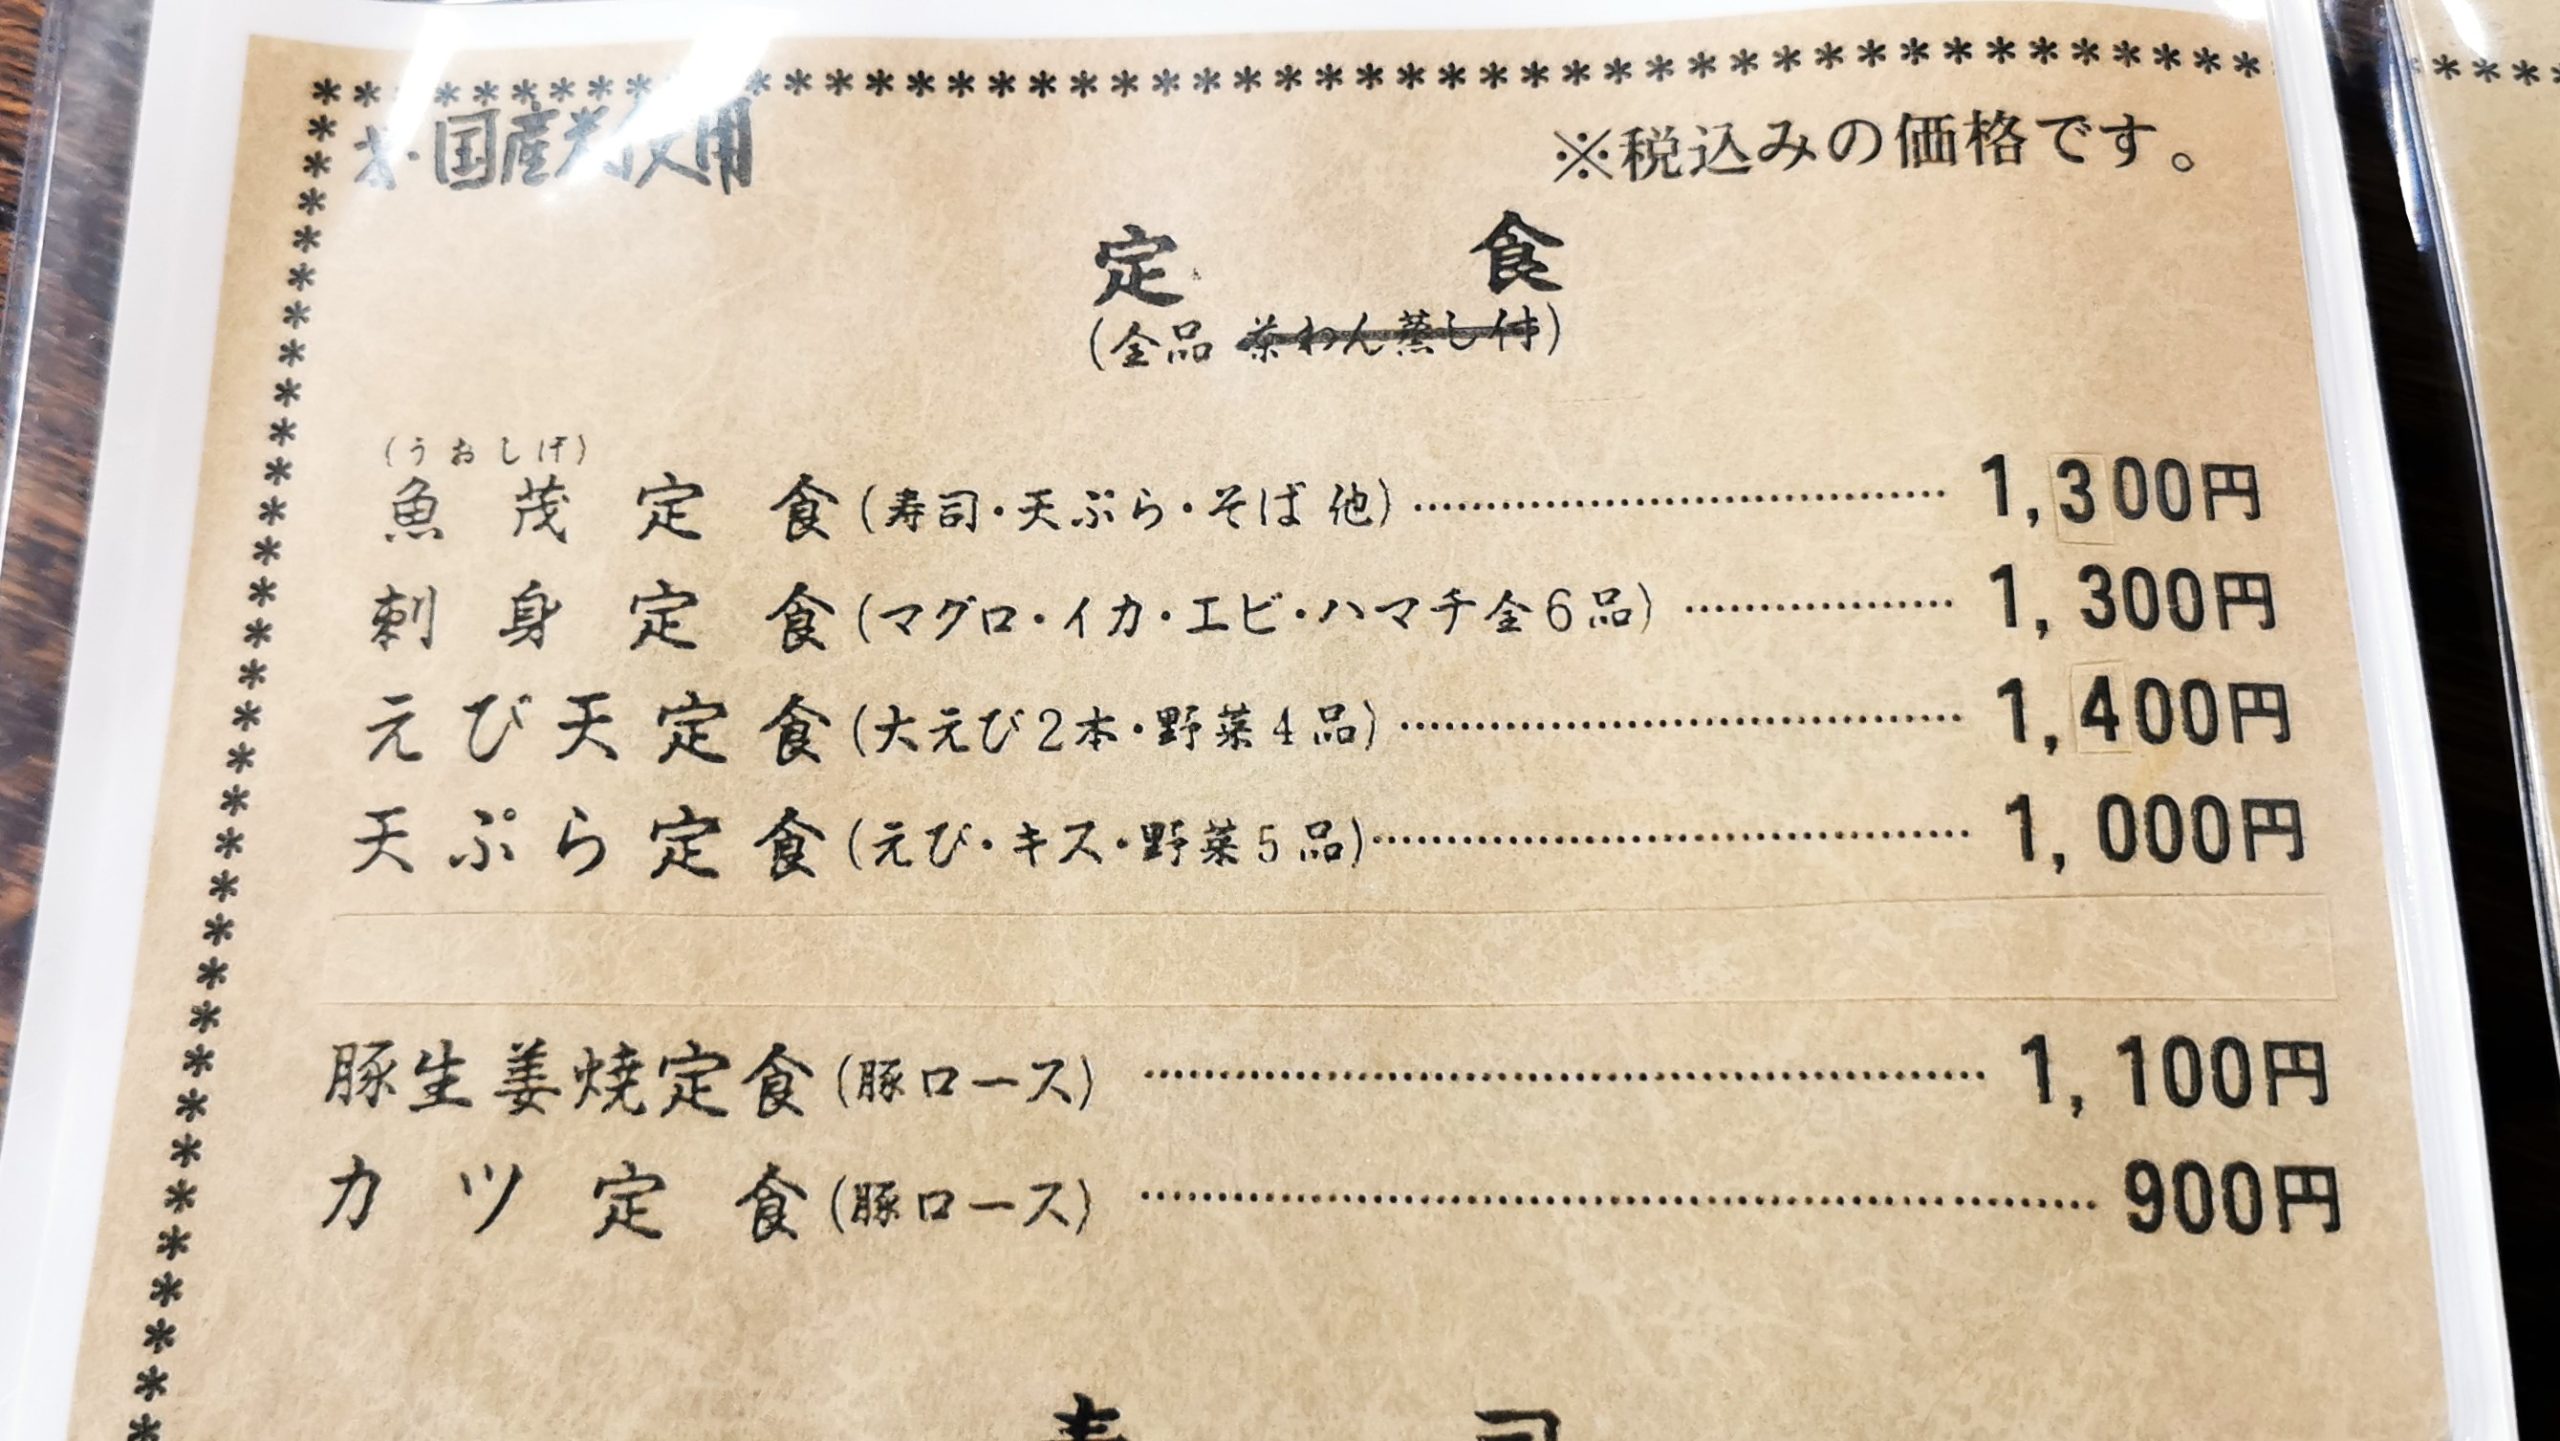 米・国産米使用
※税込みの価格です。
定食
(全品 茶わん蒸し付)
(うおしげ)
魚茂定食(寿司・天ぷら・そば 他) 1,300円
刺身定食(マグロ・イカ・エビ・ハマチ全6品) 1,300円
えび天定食(大えび2本・野菜4品) 1,400円
天ぷら定食(えび・キス・野菜5品) 1,000円
豚生姜焼定食(豚ロース) 1,100円
カツ定食(豚ロース) 900円